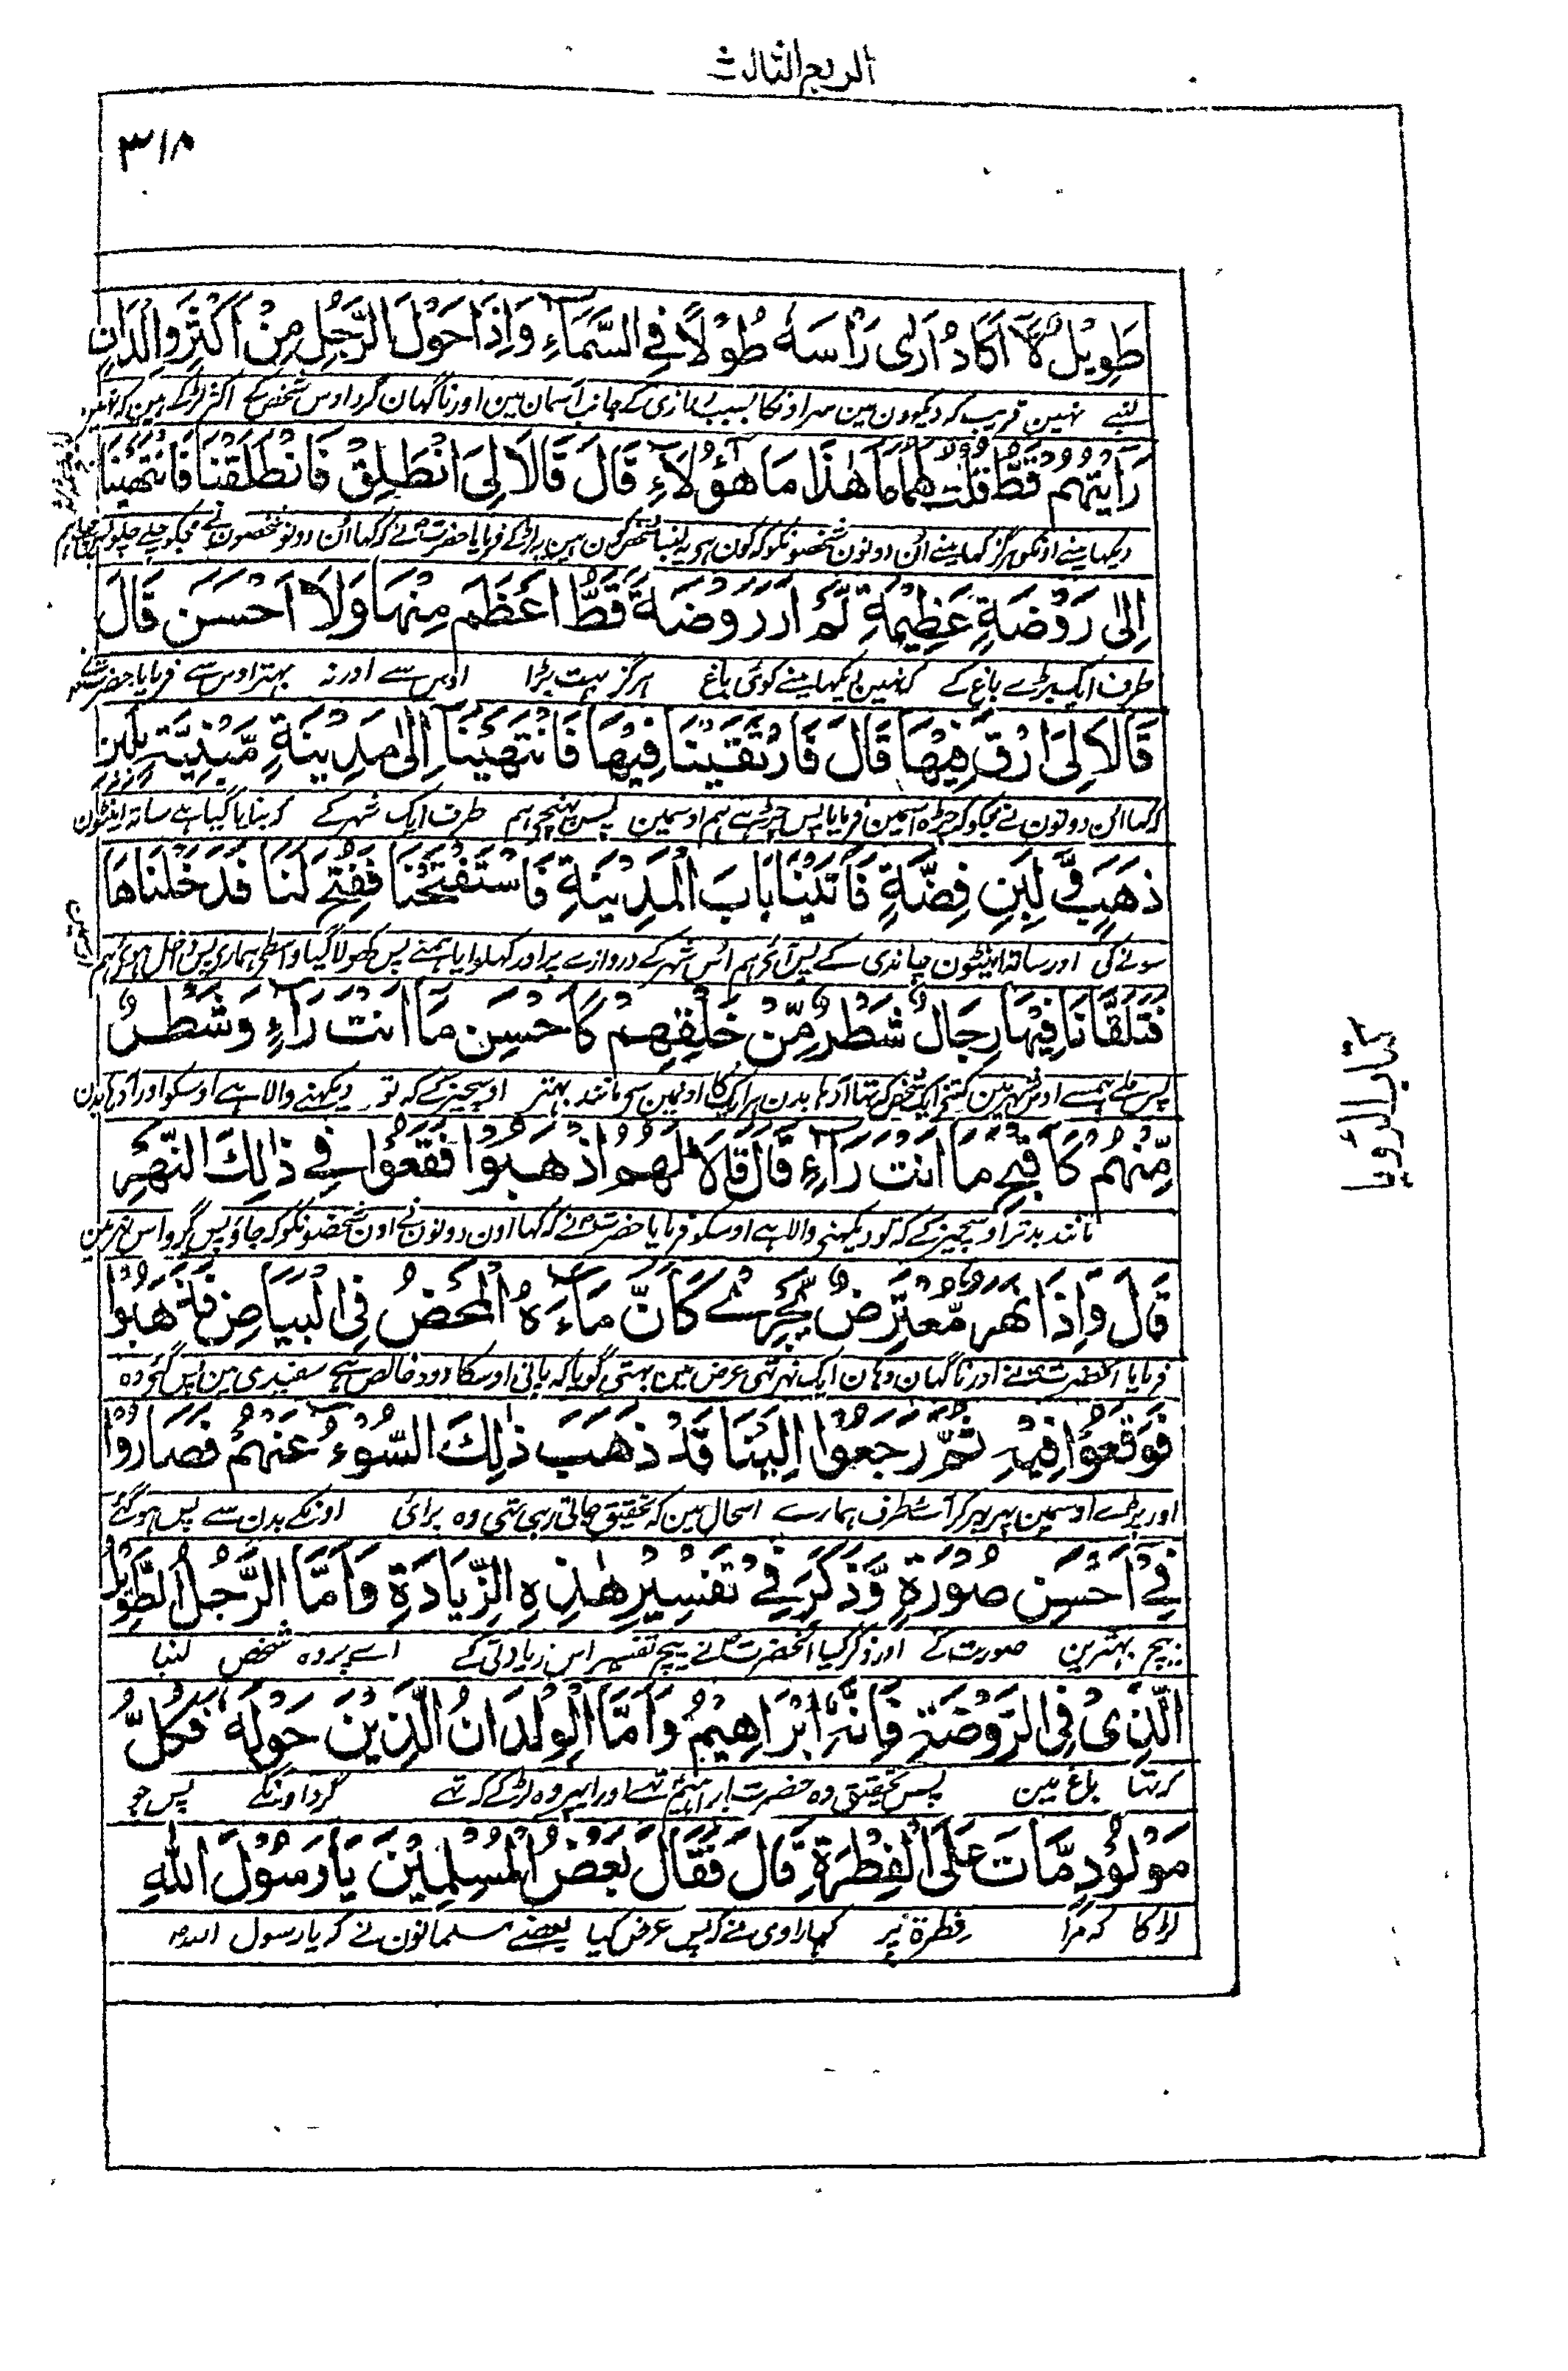 الربع الثالث
٣١٨
طَوِيْلٌ لَّا اَكَادُ اَرٰى رَاْسَهٗ طُوْلًا فِى السَّمَآءِ وَاِذَا حَوْلَ الرَّجُلِ مِنْ اَكْثَرِ وِلْدَانٍ
لنبے نہین قریب کہ دیکھون مین سر اونکا بسبب درازی کے جانب آسمان مین اور ناگہان گرد اوس شخص کے اکثر لڑکے ہین کہ
رَاَيْتُهُمْ قَطُّ قُلْتُ لَهُمَا مَا هٰذَا مَا هٰؤُلَآءِ قَالَ قَالَا لِىَ انْطَلِقْ فَانْطَلَقْنَا فَانْتَهَيْنَا
دیکھا مینے اونکو ہرگز کہا مینے اُن دونون شخصونکو کہ کون ہی یہ لنبا شخص کون ہین یہ لڑکے فرمایا حضرت نے کہ کہا اُن دونو شخصون نے مجکو چلے چلو
اِلٰى رَوْضَةٍ عَظِيْمَةٍ لَّمْ اَرَ رَوْضَةً قَطُّ اَعْظَمَ مِنْهَا وَلَا اَحْسَنَ قَالَ
طرف ایک بڑے باغ کے کہ نہین دیکھا مینے کوئی باغ ہرگز بہت بڑا اوس سے اور نہ بہتر اوس سے فرمایا حضرت نے
قَالَا لِىَ ارْقَ فِيْهَا قَالَ فَارْتَقَيْنَا فِيْهَا فَانْتَهَيْنَا اِلٰى مَدِيْنَةٍ مَّبْنِيَّةٍ بِلَبِنِ
کہ کہا ان دونون نے مجکو کہ چڑہ اسمین فرمایا پس چڑہے ہم اوسمین پس پہنچے ہم طرف ایک شہر کے کہ بنایا گیا ہے ساتہ اینٹون
ذَهَبٍ وَّ لَبِنِ فِضَّةٍ فَاَتَيْنَا بَابَ الْمَدِيْنَةِ فَاسْتَفْتَحْنَا فَفُتِحَ لَنَا فَدَخَلْنَاهَا
سونے کی اور ساتہ اینٹون چاندی کے پس آئے ہم اُس شہر کے دروازے پر اور کہلوایا ہمنے پس کھولا گیا واسطی ہماری پس داخل ہوئے ہم
فَتَلَقَّانَا فِيْهَا رِجَالٌ شَطْرٌ مِّنْ خَلْقِهِمْ كَاَحْسَنِ مَا اَنْتَ رَآءٍ وَشَطْرٌ
پس ملے ہمسے اوس شہر مین کتنے ایک شخص کہ تہا آدہا بدن ہر ایک کا اونمین سی مانند بہتر اوسچیز کے کہ تو دیکھنے والا ہے اوسکو اور آدہا بدن
مِّنْهُمْ كَاَقْبَحِ مَا اَنْتَ رَآءٍ قَالَ قَالَا لَهُمُ اذْهَبُوْا فَقَعُوْا فِيْ ذٰلِكَ النَّهْرِ
مانند بدتر اوسچیز کے کہ تو دیکھنے والا ہے اوسکو فرمایا حضرت نے کہ کہا اون دونون نے اون شخصونکو کہ جاؤ پس گرو اس نہر مین
قَالَ وَاِذَا نَهْرٌ مُّعْتَرِضٌ يَّجْرِيْ كَاَنَّ مَآءَهُ الْمَحْضُ فِى الْبَيَاضِ فَذَهَبُوْا
فرمایا آنحضرت نے اور ناگہان وہان ایک نہر تہی عرض مین بہتی گویا کہ پانی اوسکا دود خالص ہے سفیدی مین پس گئے وہ
فَوَقَعُوْا فِيْهِ ثُمَّ رَجَعُوْا اِلَيْنَا قَدْ ذَهَبَ ذٰلِكَ السُّوْءُ عَنْهُمْ فَصَارُوْا
اور پڑے اوسمین پہر پہر کر آئے طرف ہمارے اسحال مین کہ تحقیق جاتی رہی تہی وہ برائی اونکے بدن سے پس ہو گئے
فِيْ اَحْسَنِ صُوْرَةٍ وَّذَكَرَ فِيْ تَفْسِيْرِ هٰذِهِ الزِّيَادَةِ وَاَمَّا الرَّجُلُ الطَّوِيْلُ
بیچ بہترین صورت کے اور ذکر کیا آنحضرت نے بیچ تفسیر اس زیادتی کے اے پر وہ شخص لنبا
الَّذِىْ فِى الرَّوْضَةِ فَاِنَّهٗ اِبْرَاهِيْمُ وَاَمَّا الْوِلْدَانُ الَّذِيْنَ حَوْلَهٗ فَكُلُّ
کہ تہا باغ مین پس تحقیق وہ حضرت ابراہیم تہے اور اپر وہ لڑکے کہ تہے گرد اونکے پس جو
مَوْلُوْدٍ مَّاتَ عَلَى الْفِطْرَةِ قَالَ فَقَالَ بَعْضُ الْمُسْلِمِيْنَ يَا رَسُوْلَ اللهِ
لڑکا کہ مرا فطرة پر کہا راوی نے کہ پس عرض کیا بعضے مسلمانون نے کہ یا رسول اللہ
كتاب الرؤيا